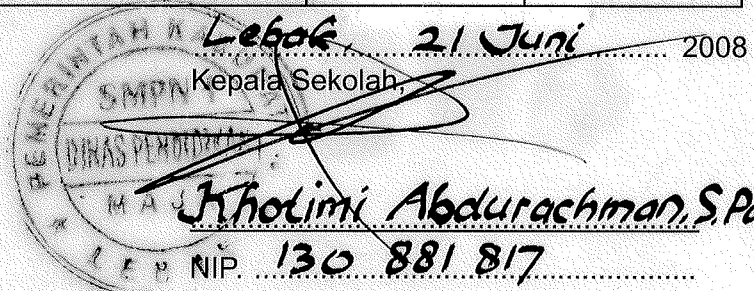 Lebak, 21 Juni 2008
Kepala Sekolah,
Kholimi Abdurachman, S.Pd
NIP. 130 881 817
PEMERINTAH
SMPN
DINAS PENDIDIKAN
MAJA
LEBAK